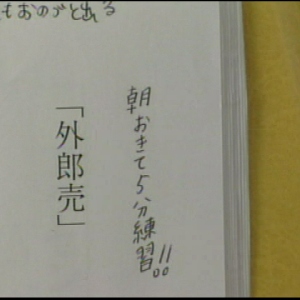 もおのずと出る
朝おきて5分練習!!
「外郎売」